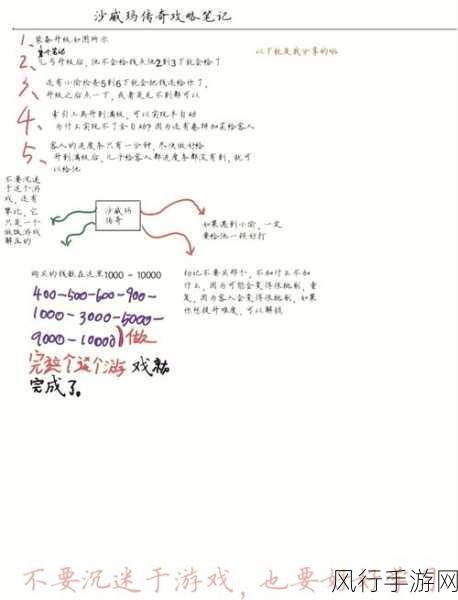 沙威玛传奇攻略笔记
1、装备升级如图所示
集个笔记
以下就是我分享的啦
2、儿子升级后，他不会给钱点他2到3下就会给了
3、还有小偷检查5到6下就会把钱还给你了，
升级之后点一下，或者是克不到都可以
4、索引工具升到满级，可以实现半自动
为什么实现不了全自动？因为还有卷饼加菜给客人
5、客人的进度条只有一分钟，尽快做好给
升到满级后，几乎给客人都进度条都没有到，就可
以给他
不要沉迷
于这个游
戏，还有
攀比，它
只是一个
做饭游戏
解压的
沙威玛
传奇
如果遇到小偷，一定
要给他一顿好打
购买的钱数在这里1000-10000
400-500-600-900-
1000-3000-5000-
9000-10000）做
完整个这个游戏就
完成了。
切记不要买那个，不加什么不加
什么，因为可能会变得很挑剔，重
复，因为客人会变得很挑剔，如果
你想提升难度，可以解锁
不要沉迷于游戏，也要好好学习
风行手游网